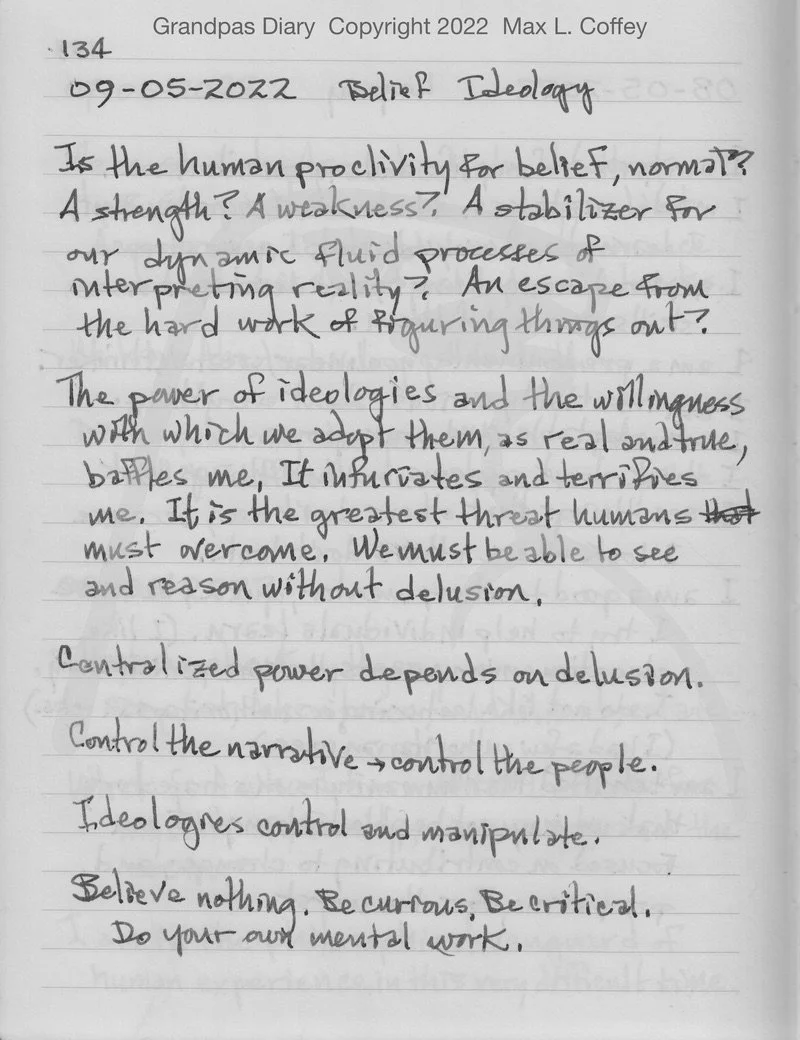 Grandpas Diary Copyright 2022 Max L. Coffey
134
09-05-2022 Belief Ideology
Is the human proclivity for belief, normal?
A strength? A weakness? A stabilizer for
our dynamic fluid processes of
interpreting reality? An escape from
the hard work of figuring things out?
The power of ideologies and the willingness
with which we adopt them, as real and true,
baffles me, It infuriates and terrifies
me. It is the greatest threat humans that
must overcome. We must be able to see
and reason without delusion.
Centralized power depends on delusion.
Control the narrative → control the people.
Ideologies control and manipulate.
Believe nothing. Be curious, Be critical.
Do your own mental work.